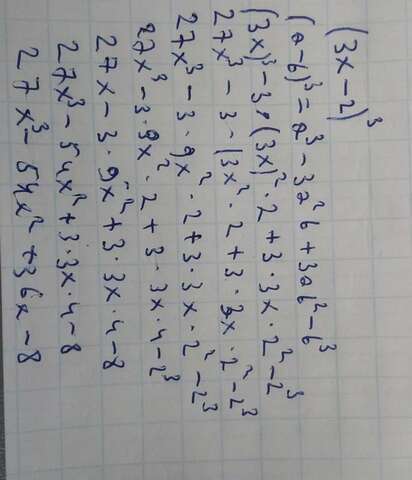 (3x-2)³
(a-b)³ = a³ - 3a²b + 3ab² - b³
(3x)³ - 3·(3x)²·2 + 3·3x·2² - 2³
27x³ - 3·(3x²·2 + 3·3x·2² - 2³
27x³ - 3·9x²·2 + 3·3x·2² - 2³
27x³ - 3·9x²·2 + 3·3x·4 - 2³
27x - 3·9x²+3·3x·4-8
27x³ - 54x² + 3·3x·4-8
27x³ - 54x² + 36x - 8